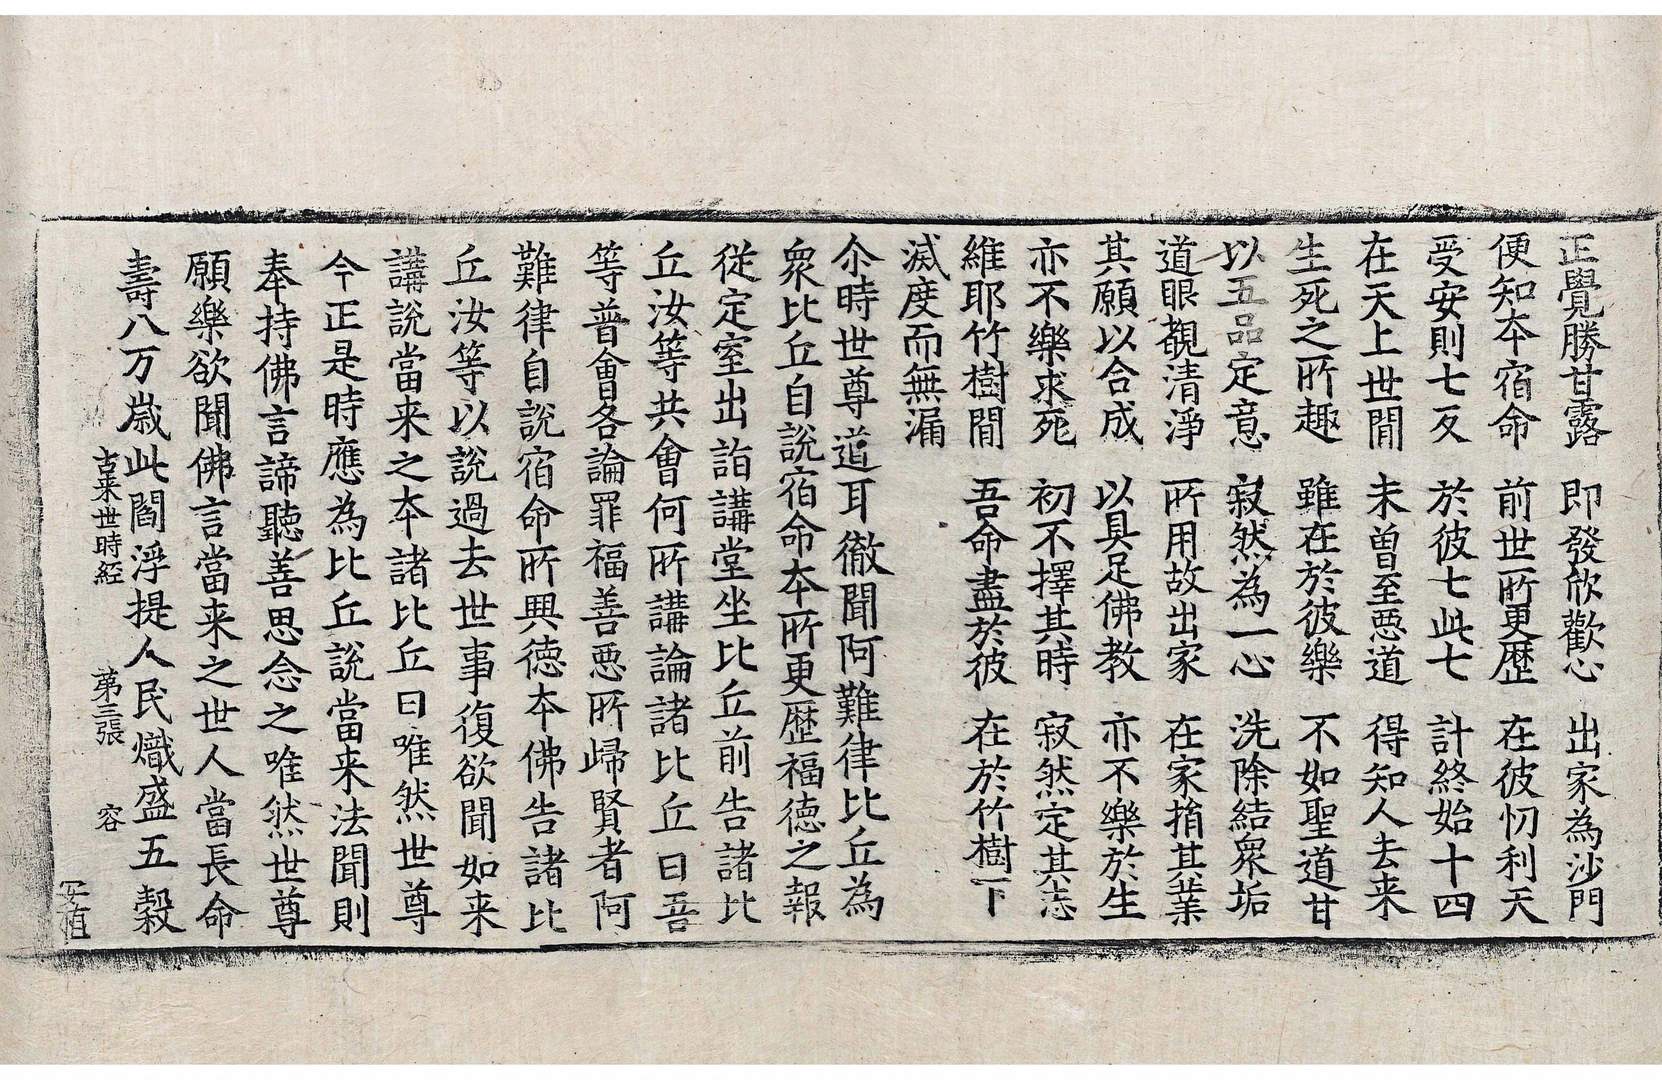 正覺勝甘露 即發欣歡心 出家為沙門
便知本宿命 前世所更歷 在彼忉利天
受安則七反 於彼七此七 計終始十四
在天上世間 未曾至惡道 得知人去来
生死之所趣 雖在於彼樂 不如聖道甘
以五品定意 寂然為一心 洗除結衆垢
道眼覩清淨 所用故出家 在家捐其業
其願以合成 以具足佛教 亦不樂於生
亦不樂求死 初不擇其時 寂然定其志
維耶竹樹間 吾命盡於彼 在於竹樹下
滅度而無漏
尒時世尊道耳徹聞阿難律比丘為
衆比丘自説宿命本所更歷福德之報
從定室出詣講堂坐比丘前告諸比
丘汝等共會何所講論諸比丘曰吾
等普會各論罪福善惡所歸賢者阿
難律自説宿命所興德本佛告諸比
丘汝等以説過去世事復欲聞如来
講説當来之本諸比丘曰唯然世尊
今正是時應為比丘説當来法聞則
奉持佛言諦聽善思念之唯然世尊
願樂欲聞佛言當来之世人當長命
壽八万歲此閻浮提人民熾盛五穀
古来世時經 第三張 容
安植